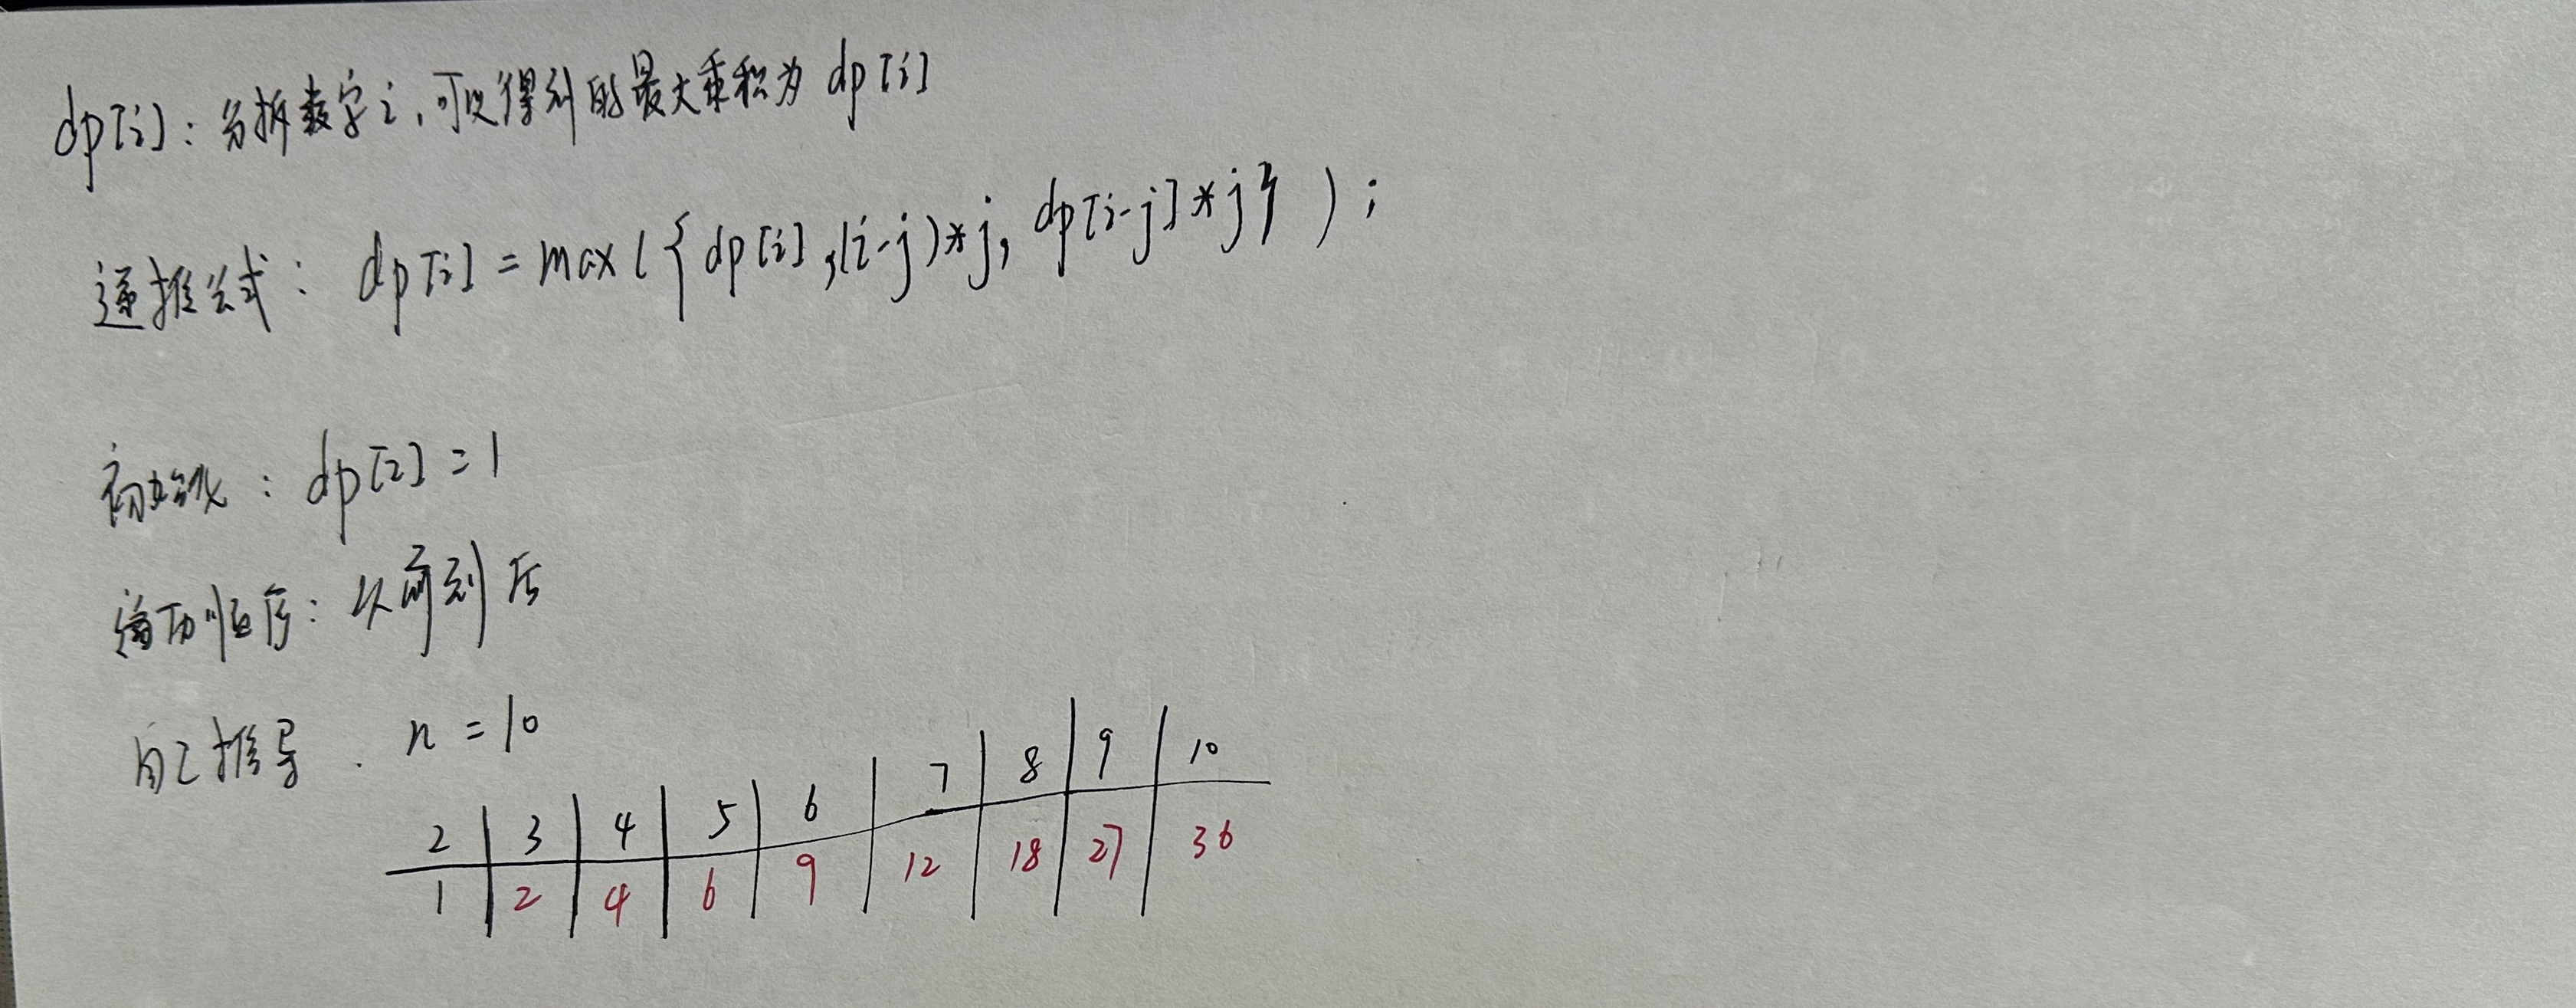 dp[i]：分拆数字i，可以得到的最大乘积为dp[i]
递推公式：dp[i] = max({dp[i],(i-j)*j, dp[i-j]*j});
初始化：dp[2]=1
遍历顺序：从前到后
自己推导. n=10
2 3 4 5 6 7 8 9 10
1 2 4 6 9 12 18 27 36